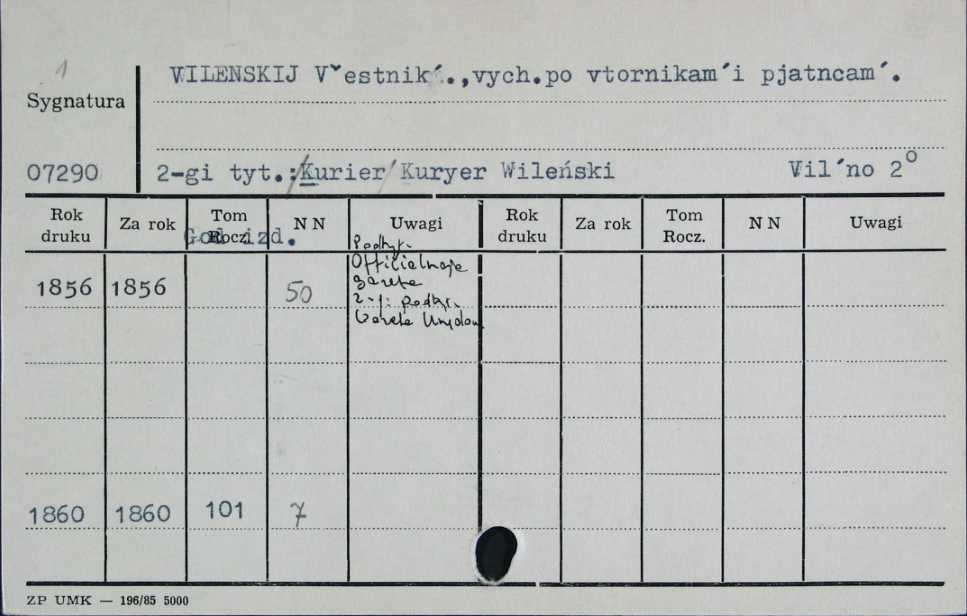 1
VILENSKIJ Vˇestnik´.,vych.po vtornikam´i pjatncam´.
Sygnatura
07290
2-gi tyt.:/Kurier/Kuryer Wileński Vil´no 2°
Rok druku Za rok Tom Rocz. N N Uwagi Rok druku Za rok Tom Rocz. N N Uwagi
God izd.
Podtyt.
Officielnaje
gazeta
1856 1856 50
2-gi podtyt.
Gazeta Urzędow
1860 1860 101 7
ZP UMK — 196/85 5000